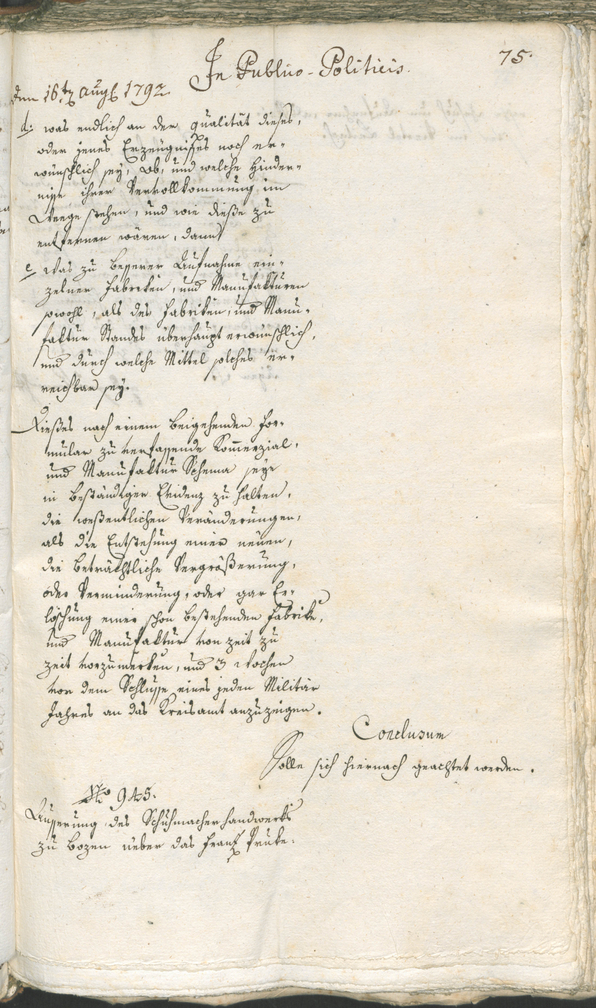 In Publico-Politicis.
75.
den 16t Augt 1792
d: was endlich an der qualität dieses,
oder jenes Erzeugnißes noch er-
wünschlich sey, ob, und welche Hinder-
niße ihrer Vervollkommung im
Weege stehen, und wie dieße zu
entfernen wären, dann
e was zu beßerer Aufnahme ein-
zelner Fabriken, und Manufakturen
sowohl, als des Fabriken, und Manu-
faktur Standes überhaupt erwünschlich,
und durch welche Mittel solches er-
reichbar sey.
Dießes nach einem beigehenden For-
mular zu verfassende Komerzial,
und Manufaktur Schema seye
in beständiger Evidenz zu halten,
die weßentlichen Veränderungen,
als die Entstehung einer neuen,
die beträchtliche Vergrößerung,
oder Verminderung, oder gar Er-
löschung einer schon bestehenden Fabrike,
und Manufaktur von Zeit zu
Zeit vorzumerken, und 3 Wochen
vor dem Schluße eines jeden Militär
Jahres an das Kreisamt anzuzeigen.
Conclusum
Solle sich hiernach geachtet werden.
No 945.
Äußerung des Schuhmacher handwerks
zu Bozen ueber das Franz